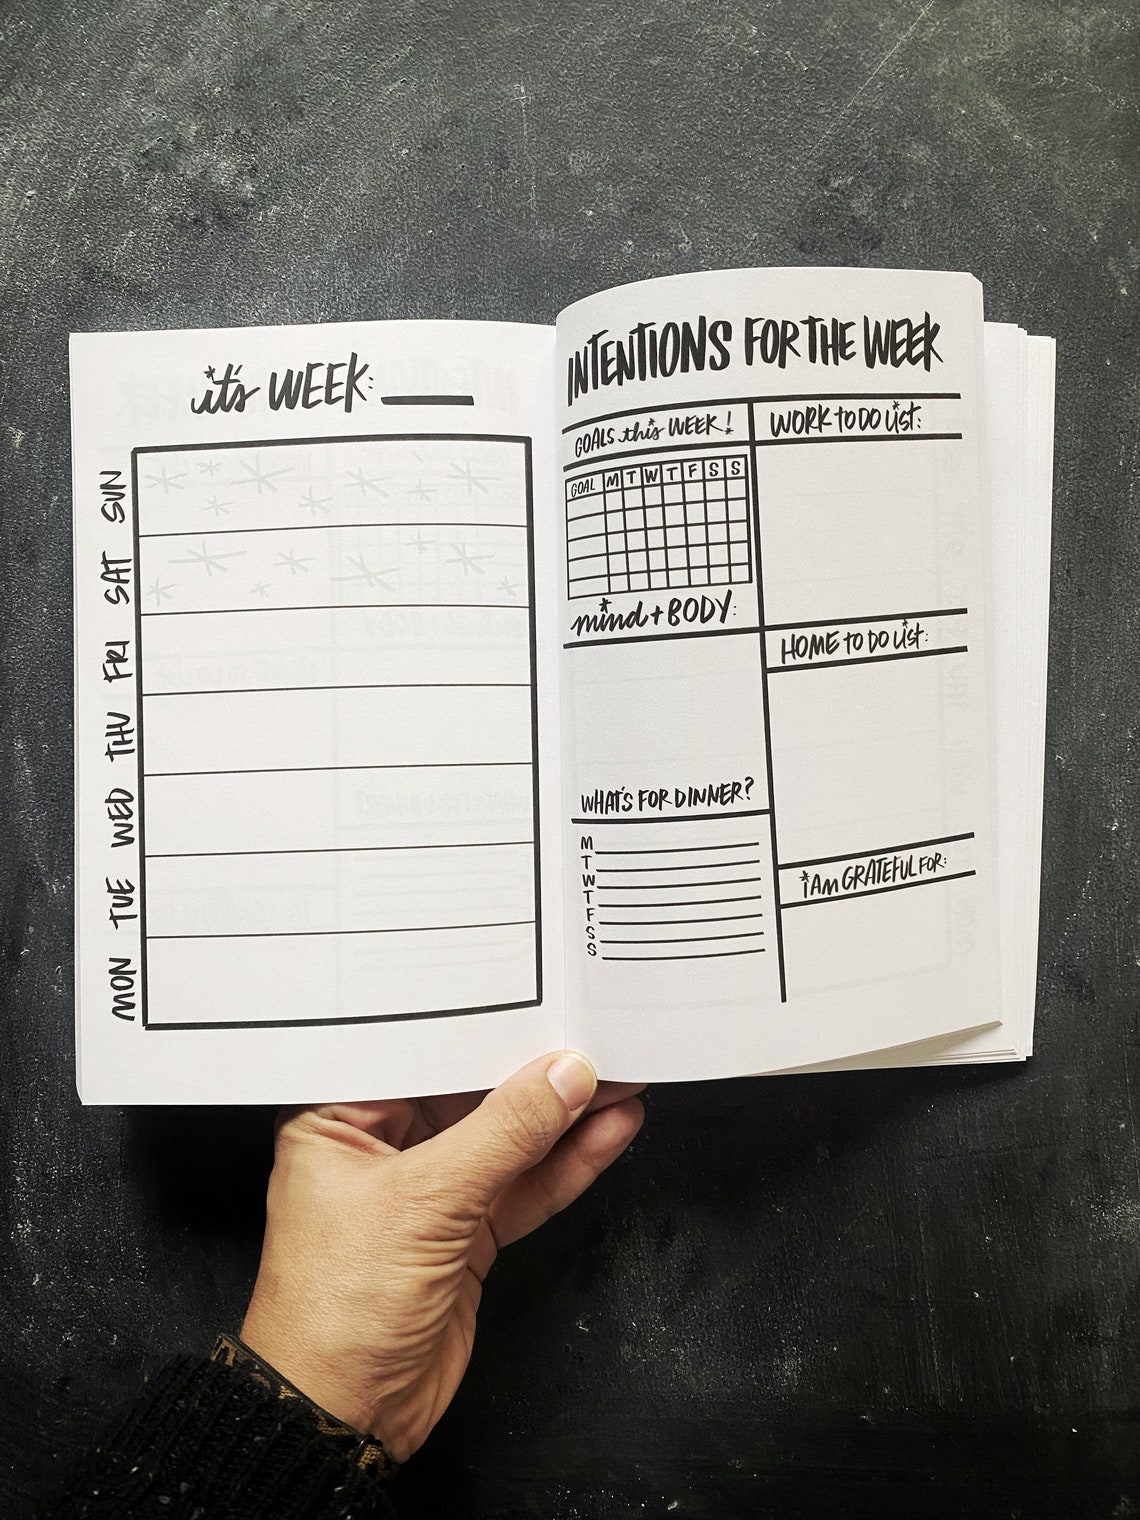 it's WEEK:
SUN
SAT
FRI
THU
WED
TUE
MON
INTENTIONS FOR THE WEEK
GOALS this WEEK!
GOAL M T W T F S S
mind + BODY:
WHAT'S FOR DINNER?
M
T
W
T
F
S
S
WORK TO DO list:
HOME TO DO list:
i Am GRATEFUL FOR: